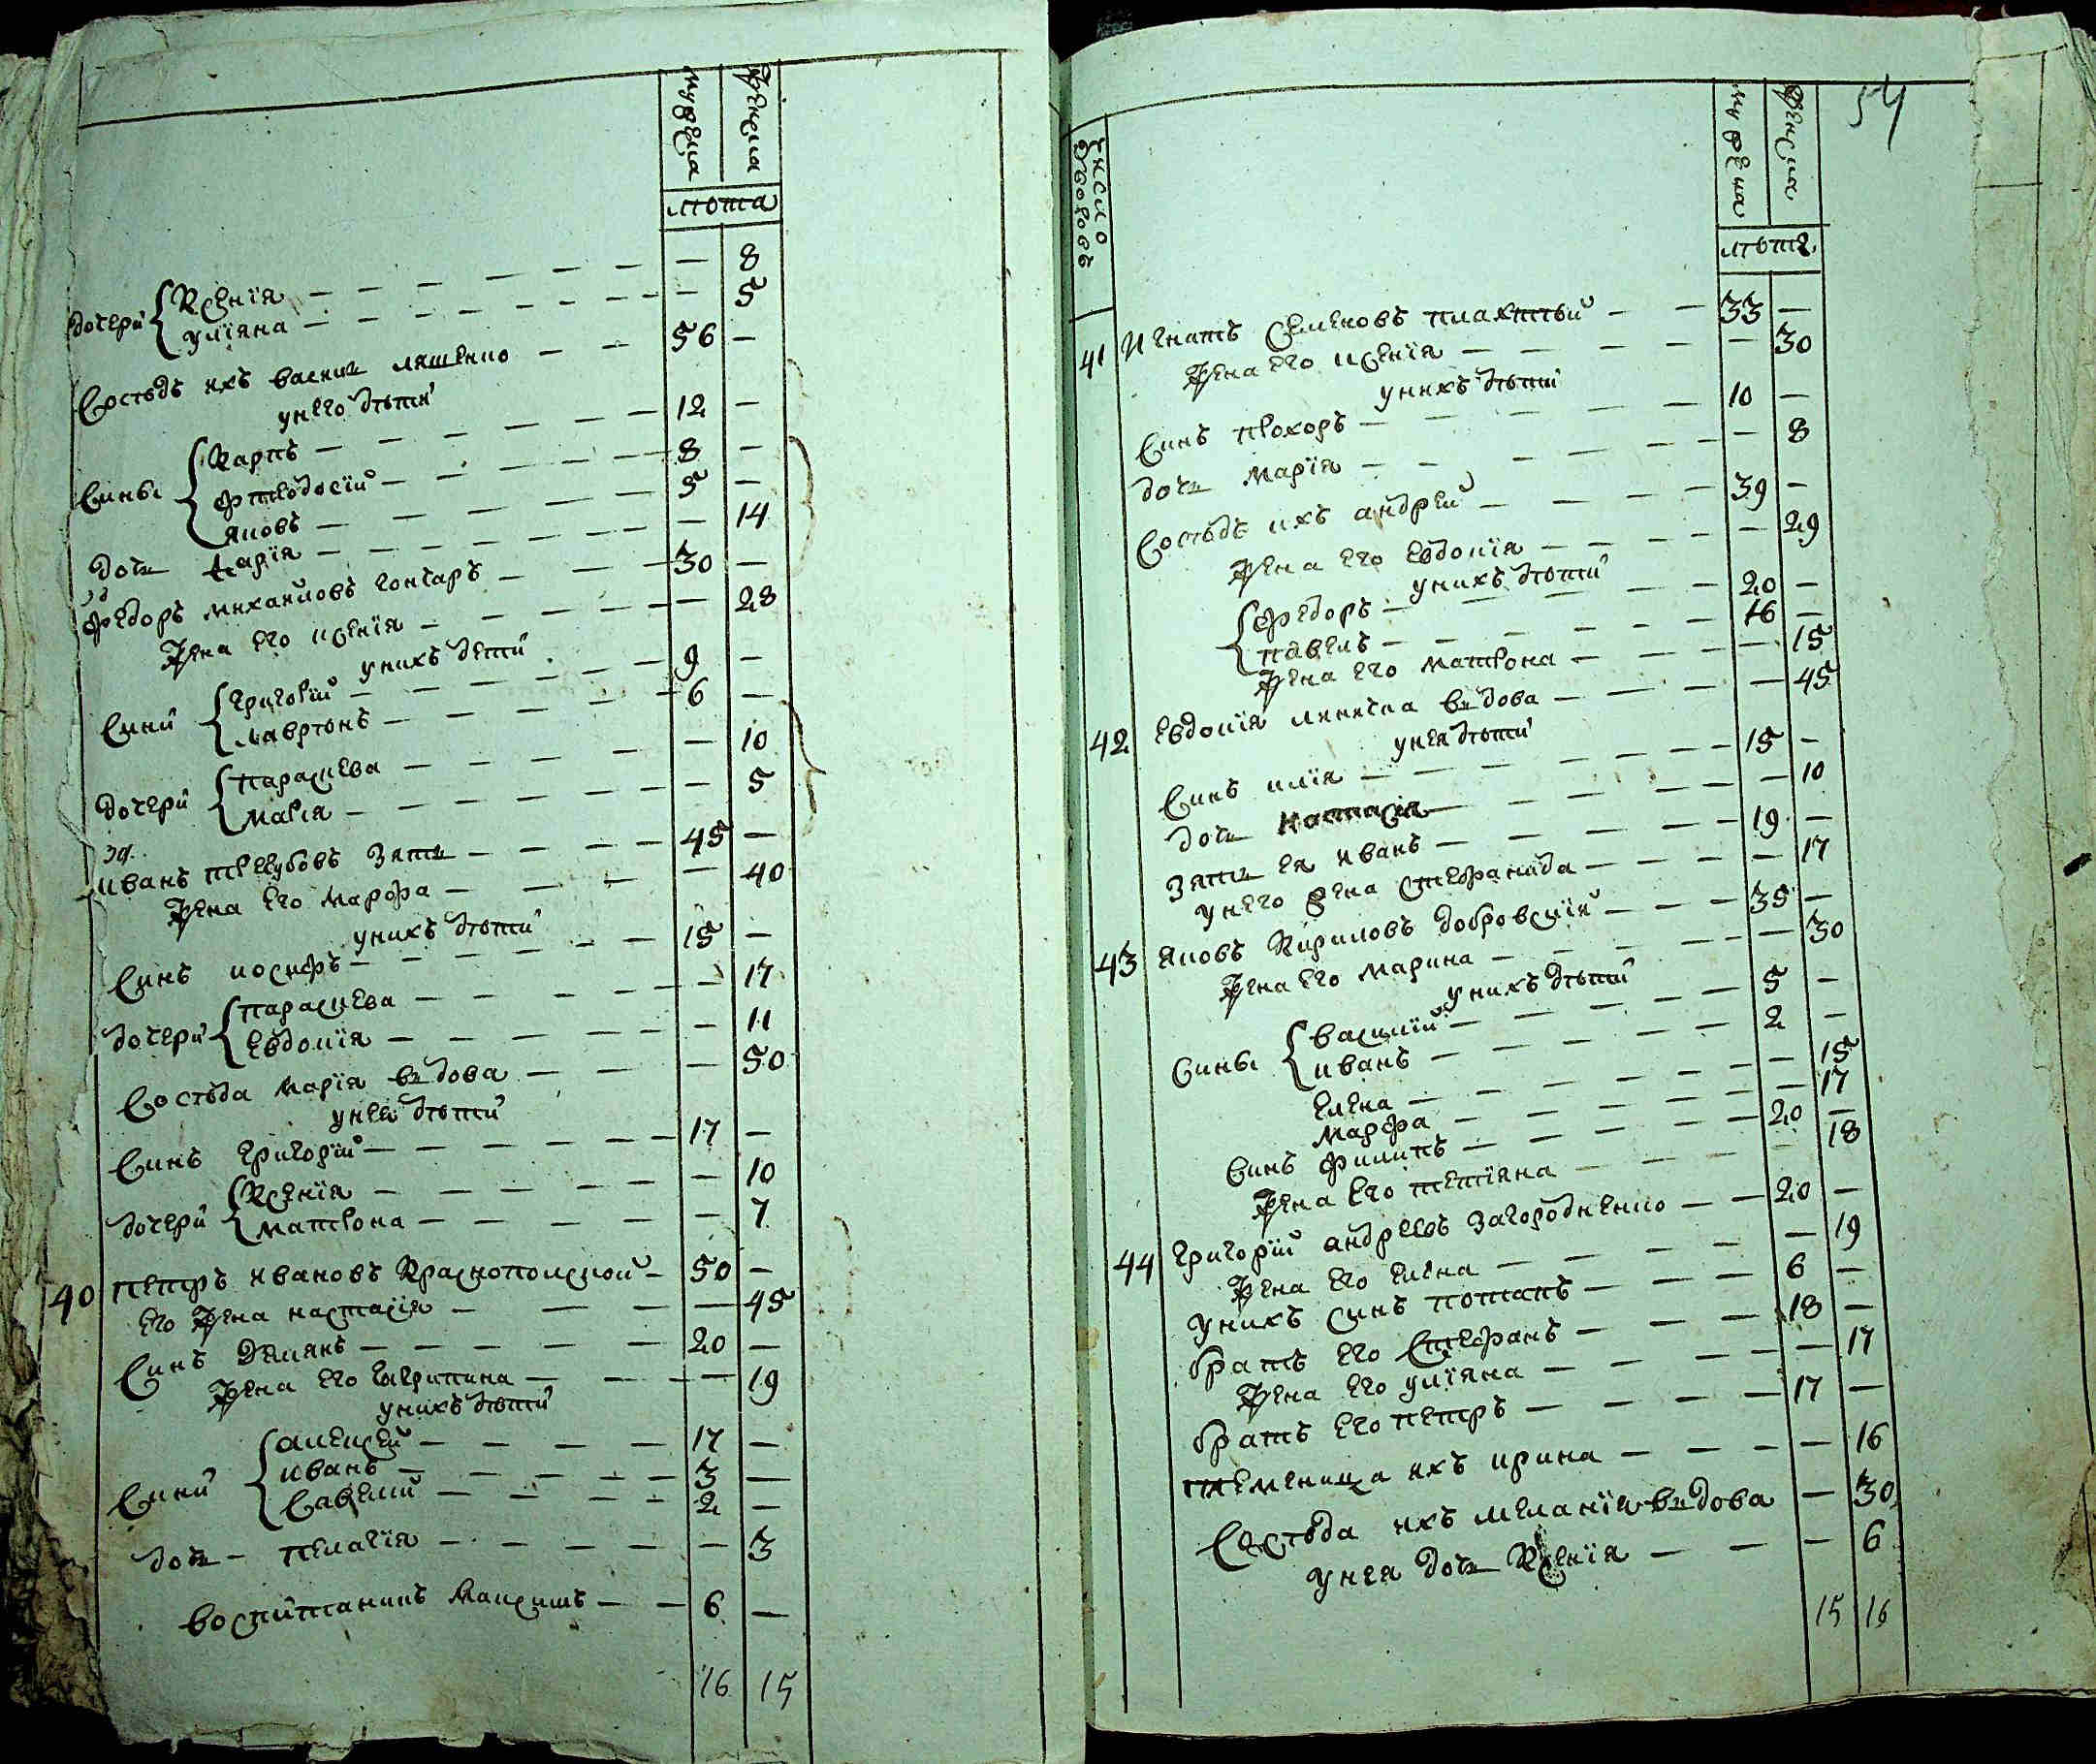 мужеска женска
лѣта
дочери Ксенїя — 8
Улїяна — 5
Сосѣдъ ихъ василь ляшенко 56 —
унего дѣти
Сины Карпъ 12 —
Фтеодосїй 8 —
яковъ 5 —
дочь дарїя — 14
Федоръ михайловъ гончаръ 30 —
Жена его ксенїя — 28
унихъ дети
Сини григорїй 9 —
лаврѣонъ 6 —
дочери параскева — 10
марїя — 5
иванъ зять 45 —
Жена его марфа — 40
унихъ дѣти
Синъ иосифъ 15 —
дочери параскева — 17
Евдокїя — 11
Сосѣда марїя вьдова — 50
унея дѣти
Синъ григорїй 17 —
дочери Ксенїя — 10
матрона — 7
40 петръ ивановъ Краснополской 50 —
его Жена настасїя — 45
Синъ Демянъ 20 —
Жена его гагрипина — 19
унихъ дѣти
Сини алексей 17 —
иванъ 3 —
Савелий 2 —
дочь пелагїя — 3
воспитанникъ максимъ 6 —
16 15
54
число дворовъ мужеска женска
лѣта
41 Игнатъ Семеновъ плахтѣй 33 —
Жена его ксенїя — 30
унихъ дѣти
Синъ прохоръ 10 —
дочь марїя — 8
Сосѣдъ ихъ андрей 39 —
Жена его евдокїя — 29
унихъ дѣти
Федоръ 20 —
павелъ 16 —
Жена его матрона — 15
42 Евдокїя вьдова — 45
унея дѣти
Синъ илїя 15 —
дочь настасїя — 10
зять ея иванъ 19 —
унего Жена стефанида — 17
43 яковъ Кириловъ добровскїй 35 —
Жена его марина — 30
унихъ дѣти
Сины василїй 5 —
иванъ 2 —
елена — 15
марфа — 17
Синъ филипъ 20 —
Жена его тетїяна — 18
44 григорїй андреевъ загородненко 20 —
Жена его елена — 19
унихъ синъ потапъ 6 —
братъ его Стефанъ 18 —
Жена его улїяна — 17
братъ его петръ 17 —
племеница ихъ ирина — 16
Сосѣда ихъ меланїя вьдова — 30
унея дочь Ксенїя — 6
15 16